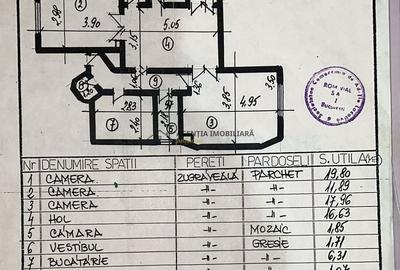 2
2.88
3.90
3.15
5.05
4
9
3.50
8
2.83
7
2.40
3.85
4.95
3
5
AGENȚIA IMOBILIARĂ
ROM VIAL
SA
București
Nr DENUMIRE SPATII PERETI PARDOSELI S. UTILA(m²)
1 CAMERA ZUGRAVEALA PARCHET 19,80
2 CAMERA -"- -"- 11,89
3 CAMERA -"- -"- 17,96
4 HOL -"- -"- 16,63
5 CĂMARA -"- MOZAIC 1,85
6 VESTIBUL -"- GRESIE 1,71
7 BUCATĂRIE -"- -"- 6,31